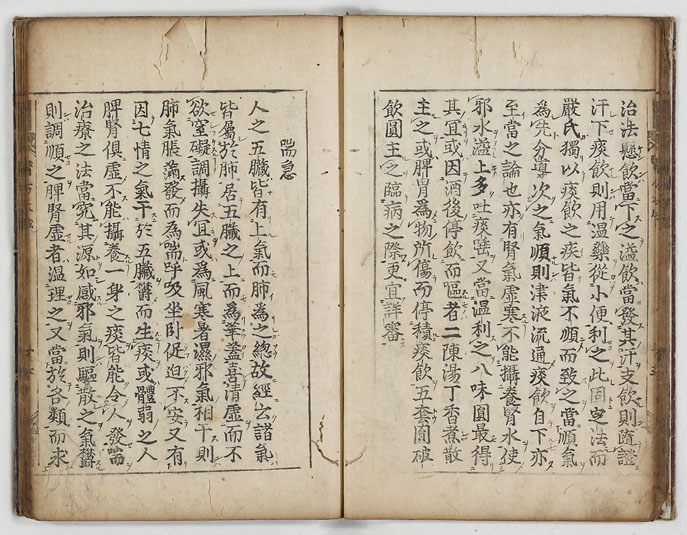 治法懸飲當下之溢飲當發其汗支飲則隨證
汗下痰飲則用温藥從小便利之此固定法而
嚴氏獨以痰飲之疾皆氣不順而致之當順氣
爲先分導次之氣順則津液流通痰飲自下亦
至當之論也亦有腎氣虚寒不能攝養腎水使
邪水溢上多吐痰唾又當温利之八味圓最得
其宜或因酒後停飲而嘔者二陳湯丁香煮散
主之或脾胃爲物所傷而停積痰飲五套圓破
飲圓主之臨病之際更宜詳審
喘急
人之五臟皆有上氣而肺爲之總故經云諸氣
皆屬於肺居五臟之上而爲華蓋喜清虚而不
欲窒礙調攝失宜或爲風寒暑濕邪氣相干則
肺氣脹滿發而爲喘呼吸坐卧促迫不安又有
因七情之氣干於五臟欝而生痰或體弱之人
脾腎俱虚不能攝養一身之痰皆能令人發喘
治療之法當究其源如感邪氣則驅散之氣欝
則調順之脾腎虚者温理之又當於各類而求